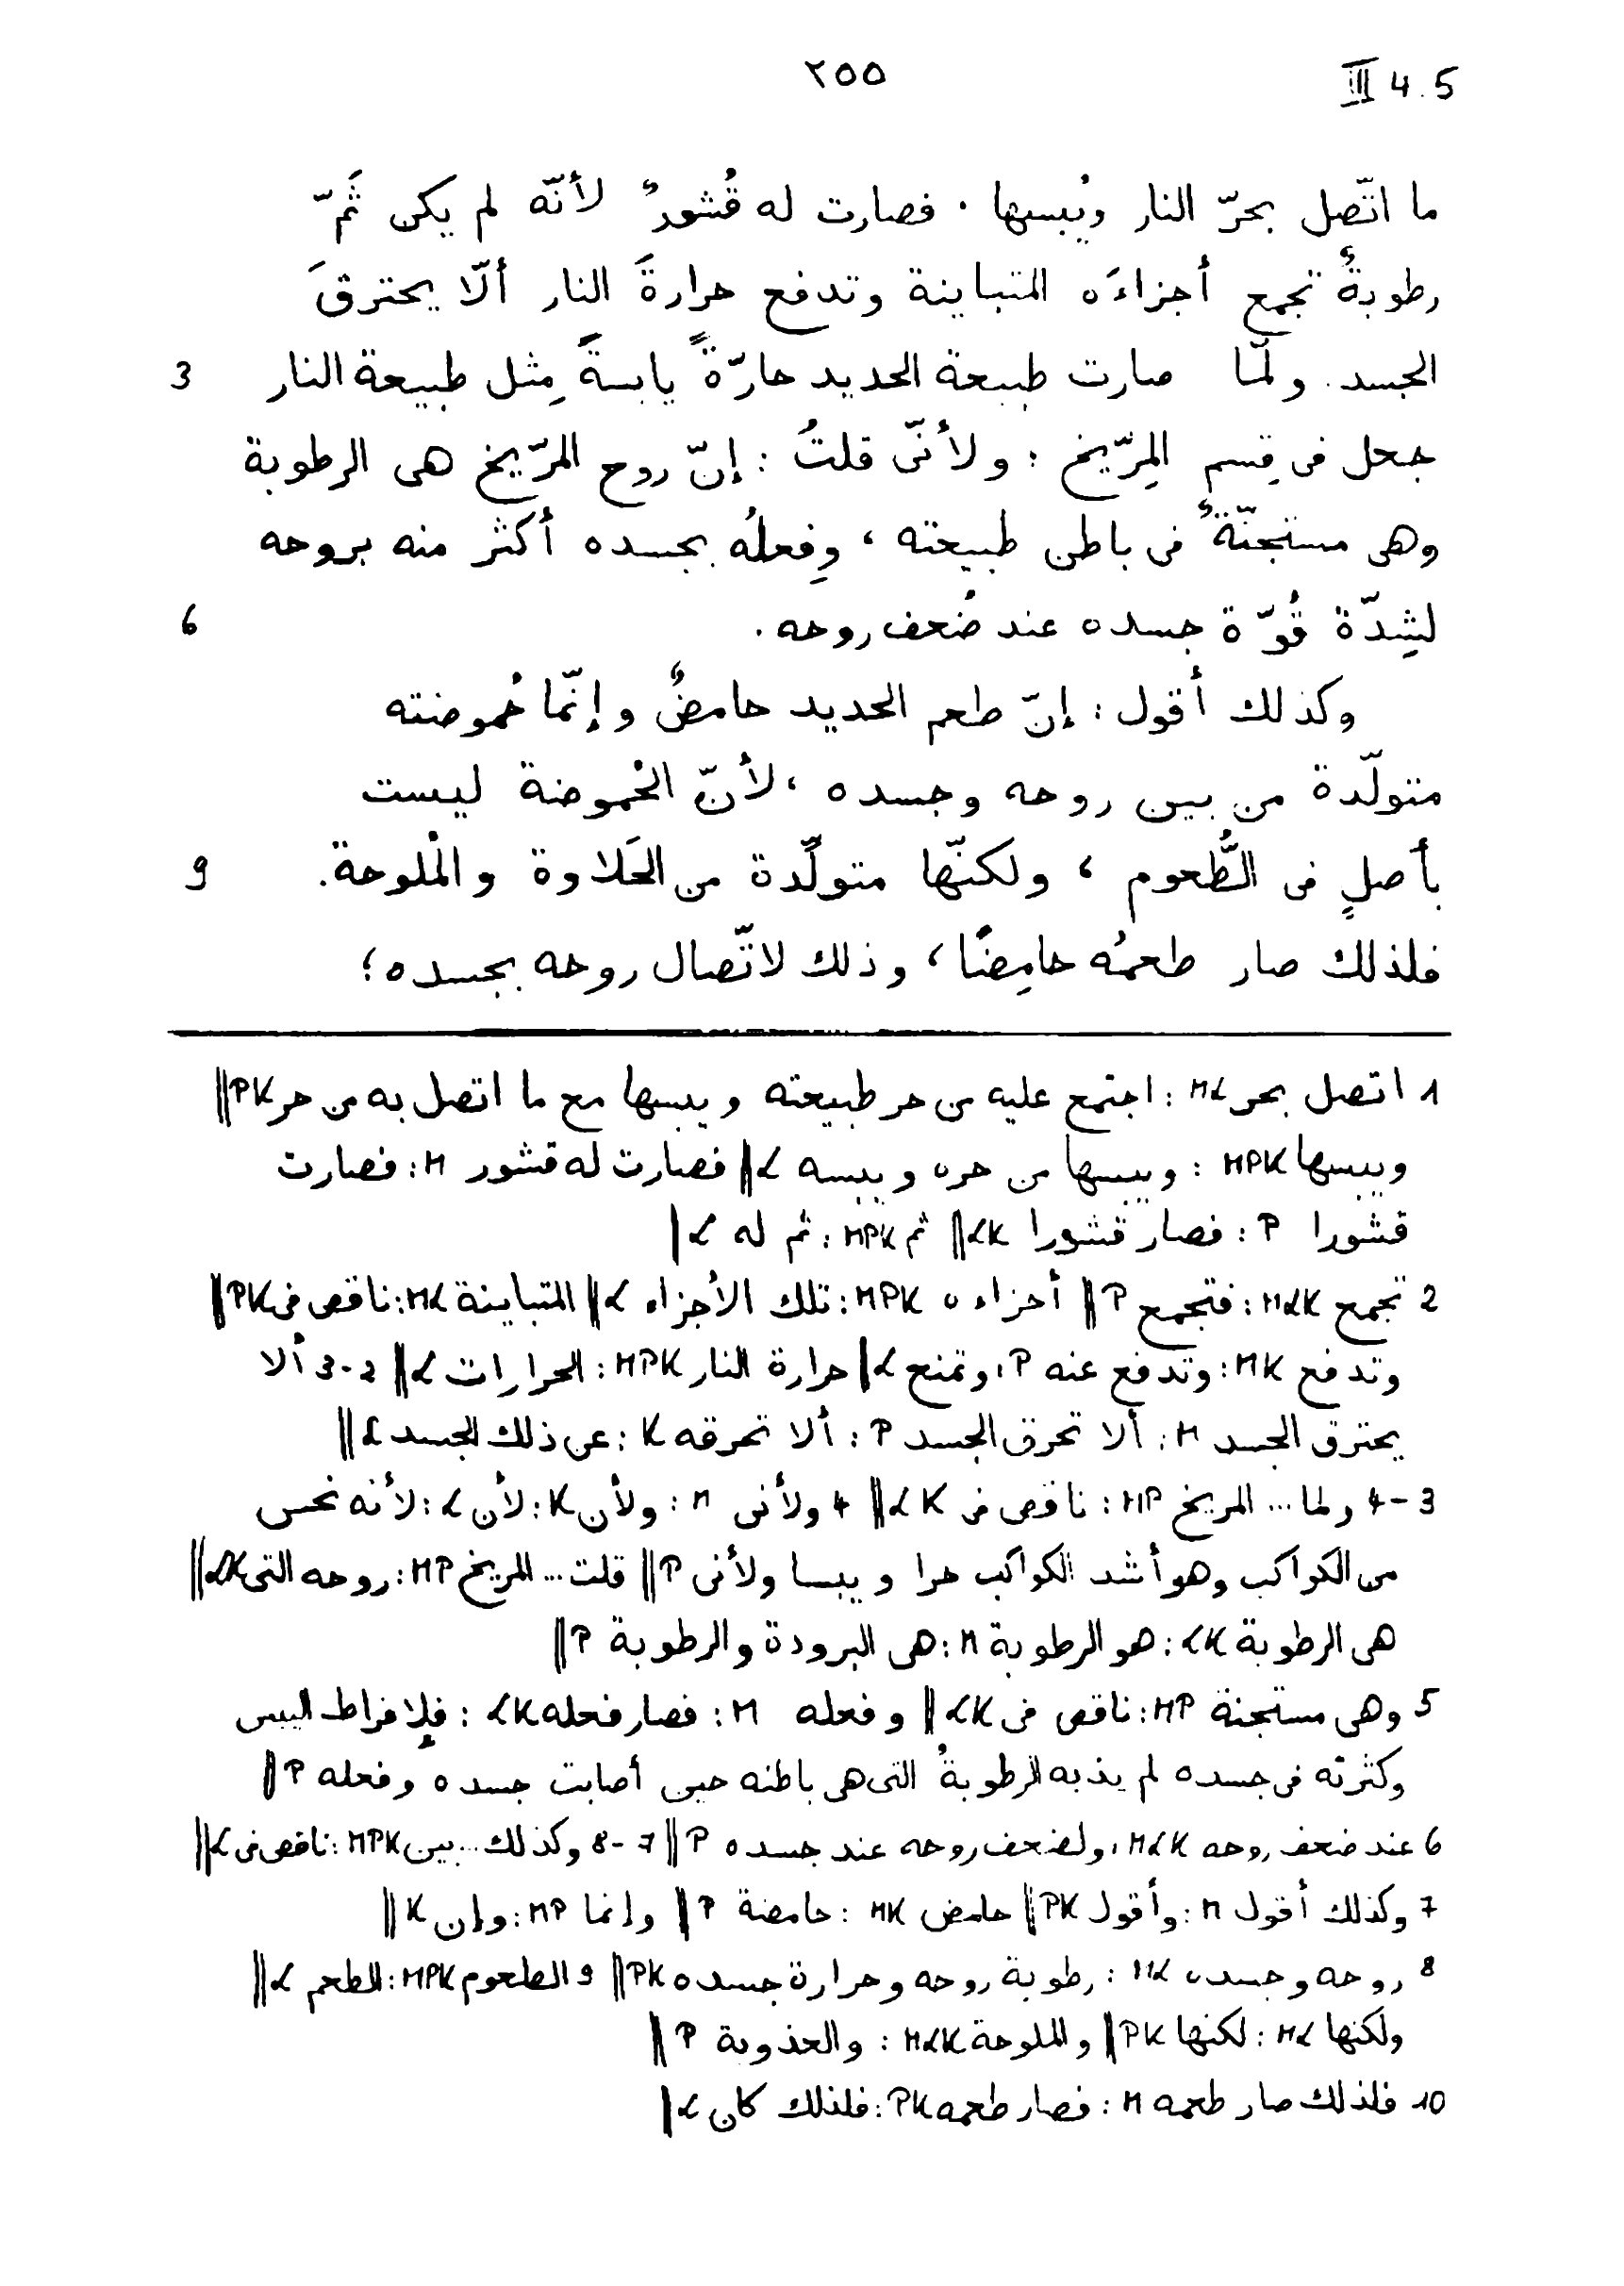 ٢٥٥
III 4.5
ما اتّصل بحرّ النار ويُبسها . فصارت له قُشورٌ لأنّه لم يكن ثَمّ
رطوبةٌ تجمع أجزاءَه المتباينة وتدفع حرارةَ النار ألّا يحترقَ
الجسد . ولمّا صارت طبيعة الحديد حارّةً يابسةً مِثل طبيعة النار 3
جعل فى قِسم المِرّيخ : ولأنّى قلتُ : إنّ روح المرّيخ هى الرطوبة
وهى مستجنّةٌ فى باطن طبيعته ، وفِعلُه بجسده أكثر منه بروحه
لشِدّة قُوّة جسده عند ضُعف روحه . 6
وكذلك أقول : إنّ طعم الحديد حامضٌ وإنّما حُموضته
متولّدة من بين روحه وجسده ، لأنّ الحُموضة ليست
بأصلٍ فى الطُّعوم ، ولكنّها متولّدة من الحَلاوة والمُلوحة . 9
فلذلك صار طعمُه حامِضًا ، وذلك لاتّصال روحه بجسده ؛
1 اتصل بحر Mα : اجتمع عليه من حر طبيعته ويبسها مع ما اتصل به من حر PK ||
ويبسها MPK : ويبسها من حره ويبسه α || فصارت له قشور M : فصارت
قشورا P : فصار قشورا αK || ثم MPK : ثم له α |
2 تجمع MαK : فتجمع P || أجزاءه MPK : تلك الأجزاء α || المتباينة Mα : ناقص فى PK ||
وتدفع MK : وتدفع عنه P ، وتمنع α | حرارة النار MPK : الحرارات α || 2-3 ألا
يحترق الجسد M : ألا تحرق الجسد P : ألا تحرقه K : عن ذلك الجسد α ||
3-4 ولما ... المريخ MP : ناقص فى αK || 4 ولأنى M : ولأن K : لأن α : لأنه نحس
من الكواكب وهو أشد الكواكب حرا ويبسا ولأنى P || قلت ... المريخ MP : روحه التى αK ||
هى الرطوبة αK : هو الرطوبة M : هى البرودة والرطوبة P ||
5 وهى مستجنة MP : ناقص فى αK || وفعله M : فصار فعله αK : فلإفراط اليبس
وكثرته فى جسده لم يذبه الرطوبةُ التى هى باطنه حين أصابت جسده وفعله P ||
6 عند ضعف روحه MαK ، ولضعف روحه عند جسده P || 7-8 وكذلك ... بين MPK : ناقص فى α ||
7 وكذلك أقول M : وأقول PK || حامض MK : حامضة P || وإنما MP : وإن K ||
8 روحه وجسده Mα : رطوبة روحه وحرارة جسده PK || 9 الطعوم MPK : الطعم α ||
ولكنها Mα : لكنها PK || والملوحة MαK : والعذوبة P ||
10 فلذلك صار طعمه M : فصار طعمه PK : فلذلك كان α |